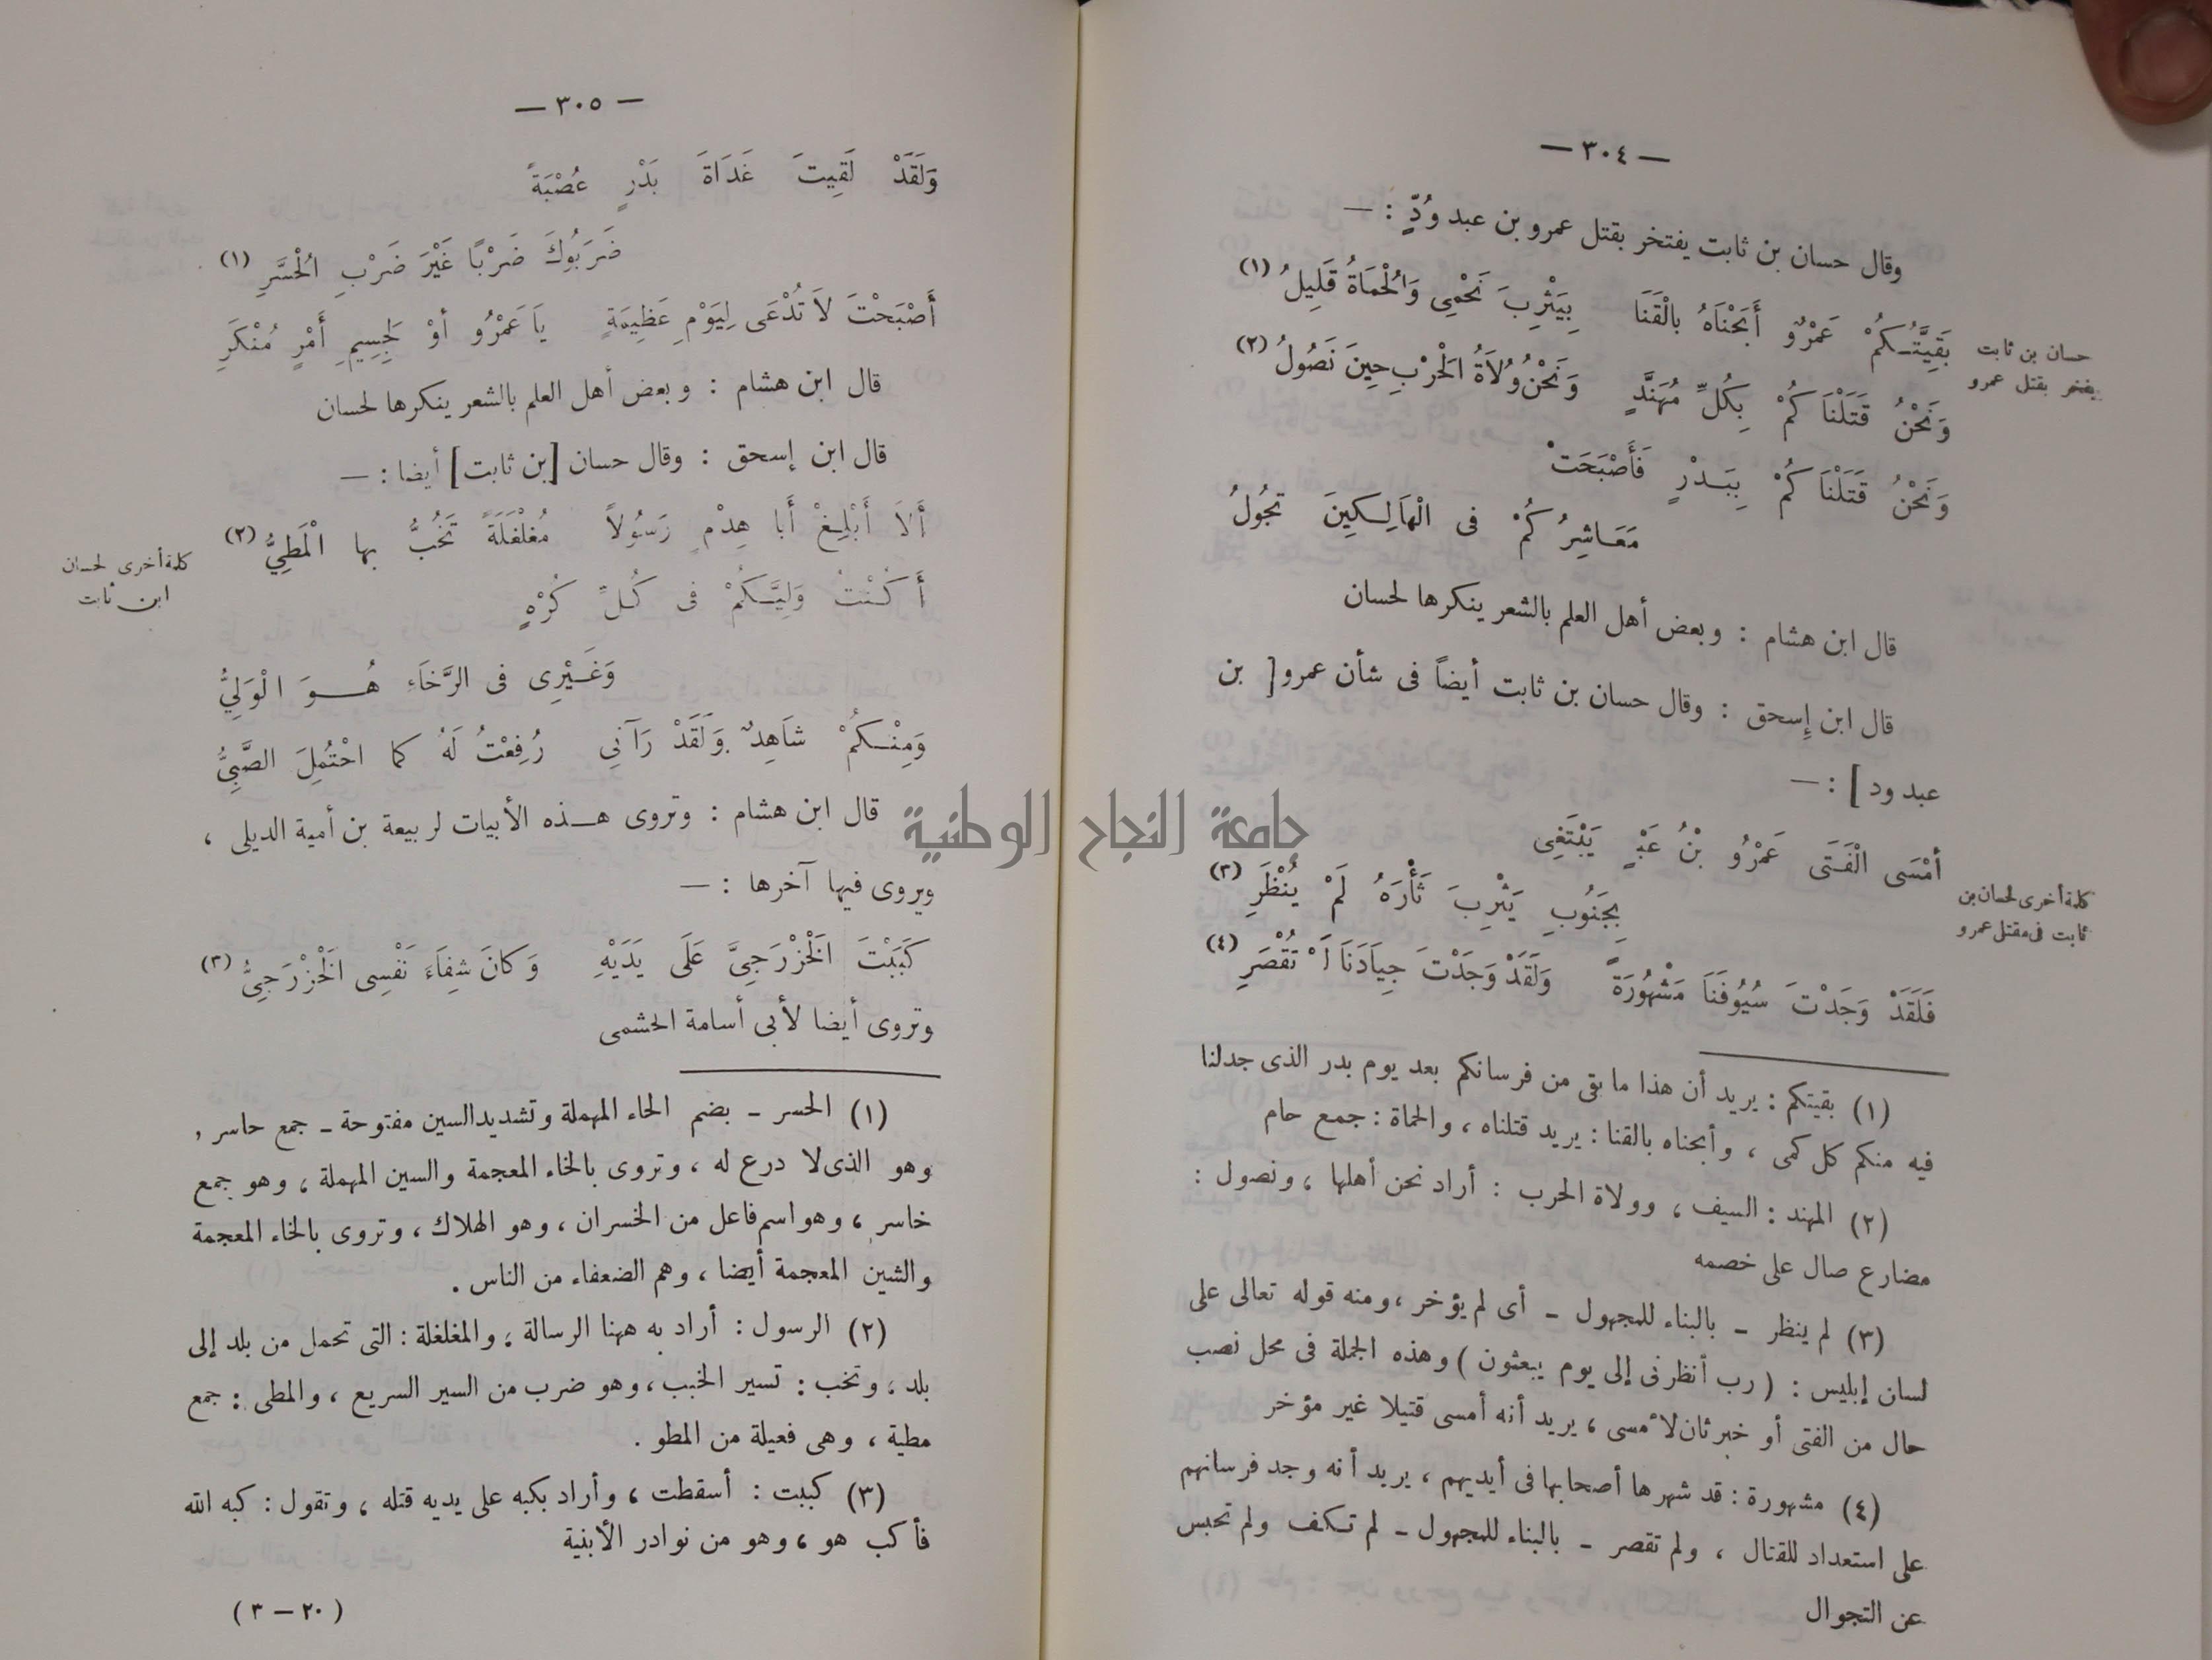 — ٣٠٤ —
وقال حسان بن ثابت يفتخر بقتل عمرو بن عبد وُدٍّ : —
بَقِيَّتُـكُمْ عَمْرٌو أَبَحْنَاهُ بالْقَنَا بِيَثْرِبَ نَحْمِى وَالْحُمَاةُ قَلِيلُ (١)
وَنَحْنُ قَتَلْنَاكُمْ بِكُلِّ مُهَنَّدٍ وَنَحْنُ وُلاَةُ الْحَرْبِ حِينَ نَصُولُ (٢)
وَنَحْنُ قَتَلْنَاكُمْ بِبَـدْرٍ فَأَصْبَحَتْ
مَعَـاشِرُكُمْ فى الْهَالِـكِينَ تَجُولُ
حسان بن ثابت
يفخر بقتل عمرو
قال ابن هشام : وبعض أهل العلم بالشعر ينكرها لحسان
قال ابن إسحق : وقال حسان بن ثابت أيضاً فى شأن عمرو [ بن
عبد ود ] : —
أَمْسَى الْفَـتَى عَمْرُو بْنُ عَبْدٍ يَبْتَغِى
بِجَنُوبِ يَثْرِبَ ثَأْرَهُ لَمْ يُنْظَرِ (٣)
فَلَقَدْ وَجَدْتَ سُيُوفَنَا مَشْهُورَةً وَلَقَدْ وَجَدْتَ جِيَادَنَا لَمْ تُقْصَرِ (٤)
كلمة أخرى لحسان بن
ثابت فى مقتل عمرو
(١) بقيتكم : يريد أن هذا ما بقى من فرسانكم بعد يوم بدر الذى جدلنا
فيه منكم كل كمى ، وأبحناه بالقنا : يريد قتلناه ، والحماة : جمع حام
(٢) المهند : السيف ، وولاة الحرب : أراد نحن أهلها ، ونصول :
مضارع صال على خصمه
(٣) لم ينظر – بالبناء للمجهول – أى لم يؤخر ، ومنه قوله تعالى على
لسان إبليس : ( رب أنظرنى إلى يوم يبعثون ) وهذه الجملة فى محل نصب
حال من الفتى أو خبر ثان لأمسى ، يريد أنه أمسى قتيلا غير مؤخر
(٤) مشهورة : قد شهرها أصحابها فى أيديهم ، يريد أنه وجد فرسانهم
على استعداد للقتال ، ولم تقصر – بالبناء للمجهول – لم تـكف ولم تحبس
عن التجوال
— ٣٠٥ —
وَلَقَدْ لَقِيتَ غَدَاةَ بَدْرٍ عُصْبَةً
ضَرَبُوكَ ضَرْبًا غَيْرَ ضَرْبِ الْحُسَّرِ (١)
أَصْبَحْتَ لاَ تُدْعَى لِيَوْمِ عَظِيمَةٍ يَا عَمْرُو أوْ لِجَسِيمِ أَمْرٍ مُنْكَرِ
قال ابن هشام : وبعض أهل العلم بالشعر ينكرها لحسان
قال ابن إسحق : وقال حسان [بن ثابت] أيضا : —
أَلاَ أَبْلِـغْ أَبَا هِدْمٍ رَسُولاً مُغَلْغَلَةً تَخُبُّ بها الْمَطِىُّ (٢)
أَكُـنْتُ وَلِيَّـكُمْ فى كُـلِّ كُرْهٍ
وَغَـيْرِى فى الرَّخَاءِ هُـوَ الْوَلِىُّ
وَمِنْـكُمْ شَاهِدٌ وَلَقَدْ رَآنِى رُفِعْتُ لَهُ كما احْتُمِلَ الصَّبِىُّ
كلمة أخرى لحسان
ابن ثابت
قال ابن هشام : وتروى هـذه الأبيات لربيعة بن أمية الديلى ،
ويروى فيها آخرها : —
كَبَبْتَ الْخَزْرَجِىَّ عَلَى يَدَيْهِ وَكانَ شِفَاءَ نَفْسِى الْخَزْرَجِىُّ (٣)
وتروى أيضا لأبى أسامة الجشمى
(١) الحسر – بضم الحاء المهملة وتشديد السين مفتوحة – جمع حاسر ،
وهو الذى لا درع له ، وتروى بالخاء المعجمة والسين المهملة ، وهو جمع
خاسر ، وهو اسم فاعل من الخسران ، وهو الهلاك ، وتروى بالخاء المعجمة
والشين المعجمة أيضا ، وهم الضعفاء من الناس .
(٢) الرسول : أراد به ههنا الرسالة ، والمغلغلة : التى تحمل من بلد إلى
بلد ، وتخب : تسير الخبب ، وهو ضرب من السير السريع ، والمطى : جمع
مطية ، وهى فعيلة من المطو .
(٣) كببت : أسقطت ، وأراد بكبه على يديه قتله ، وتقول : كبه الله
فأكب هو ، وهو من نوادر الأبنية
( ٢٠ – ٣ )
جامعة النجاح الوطنية